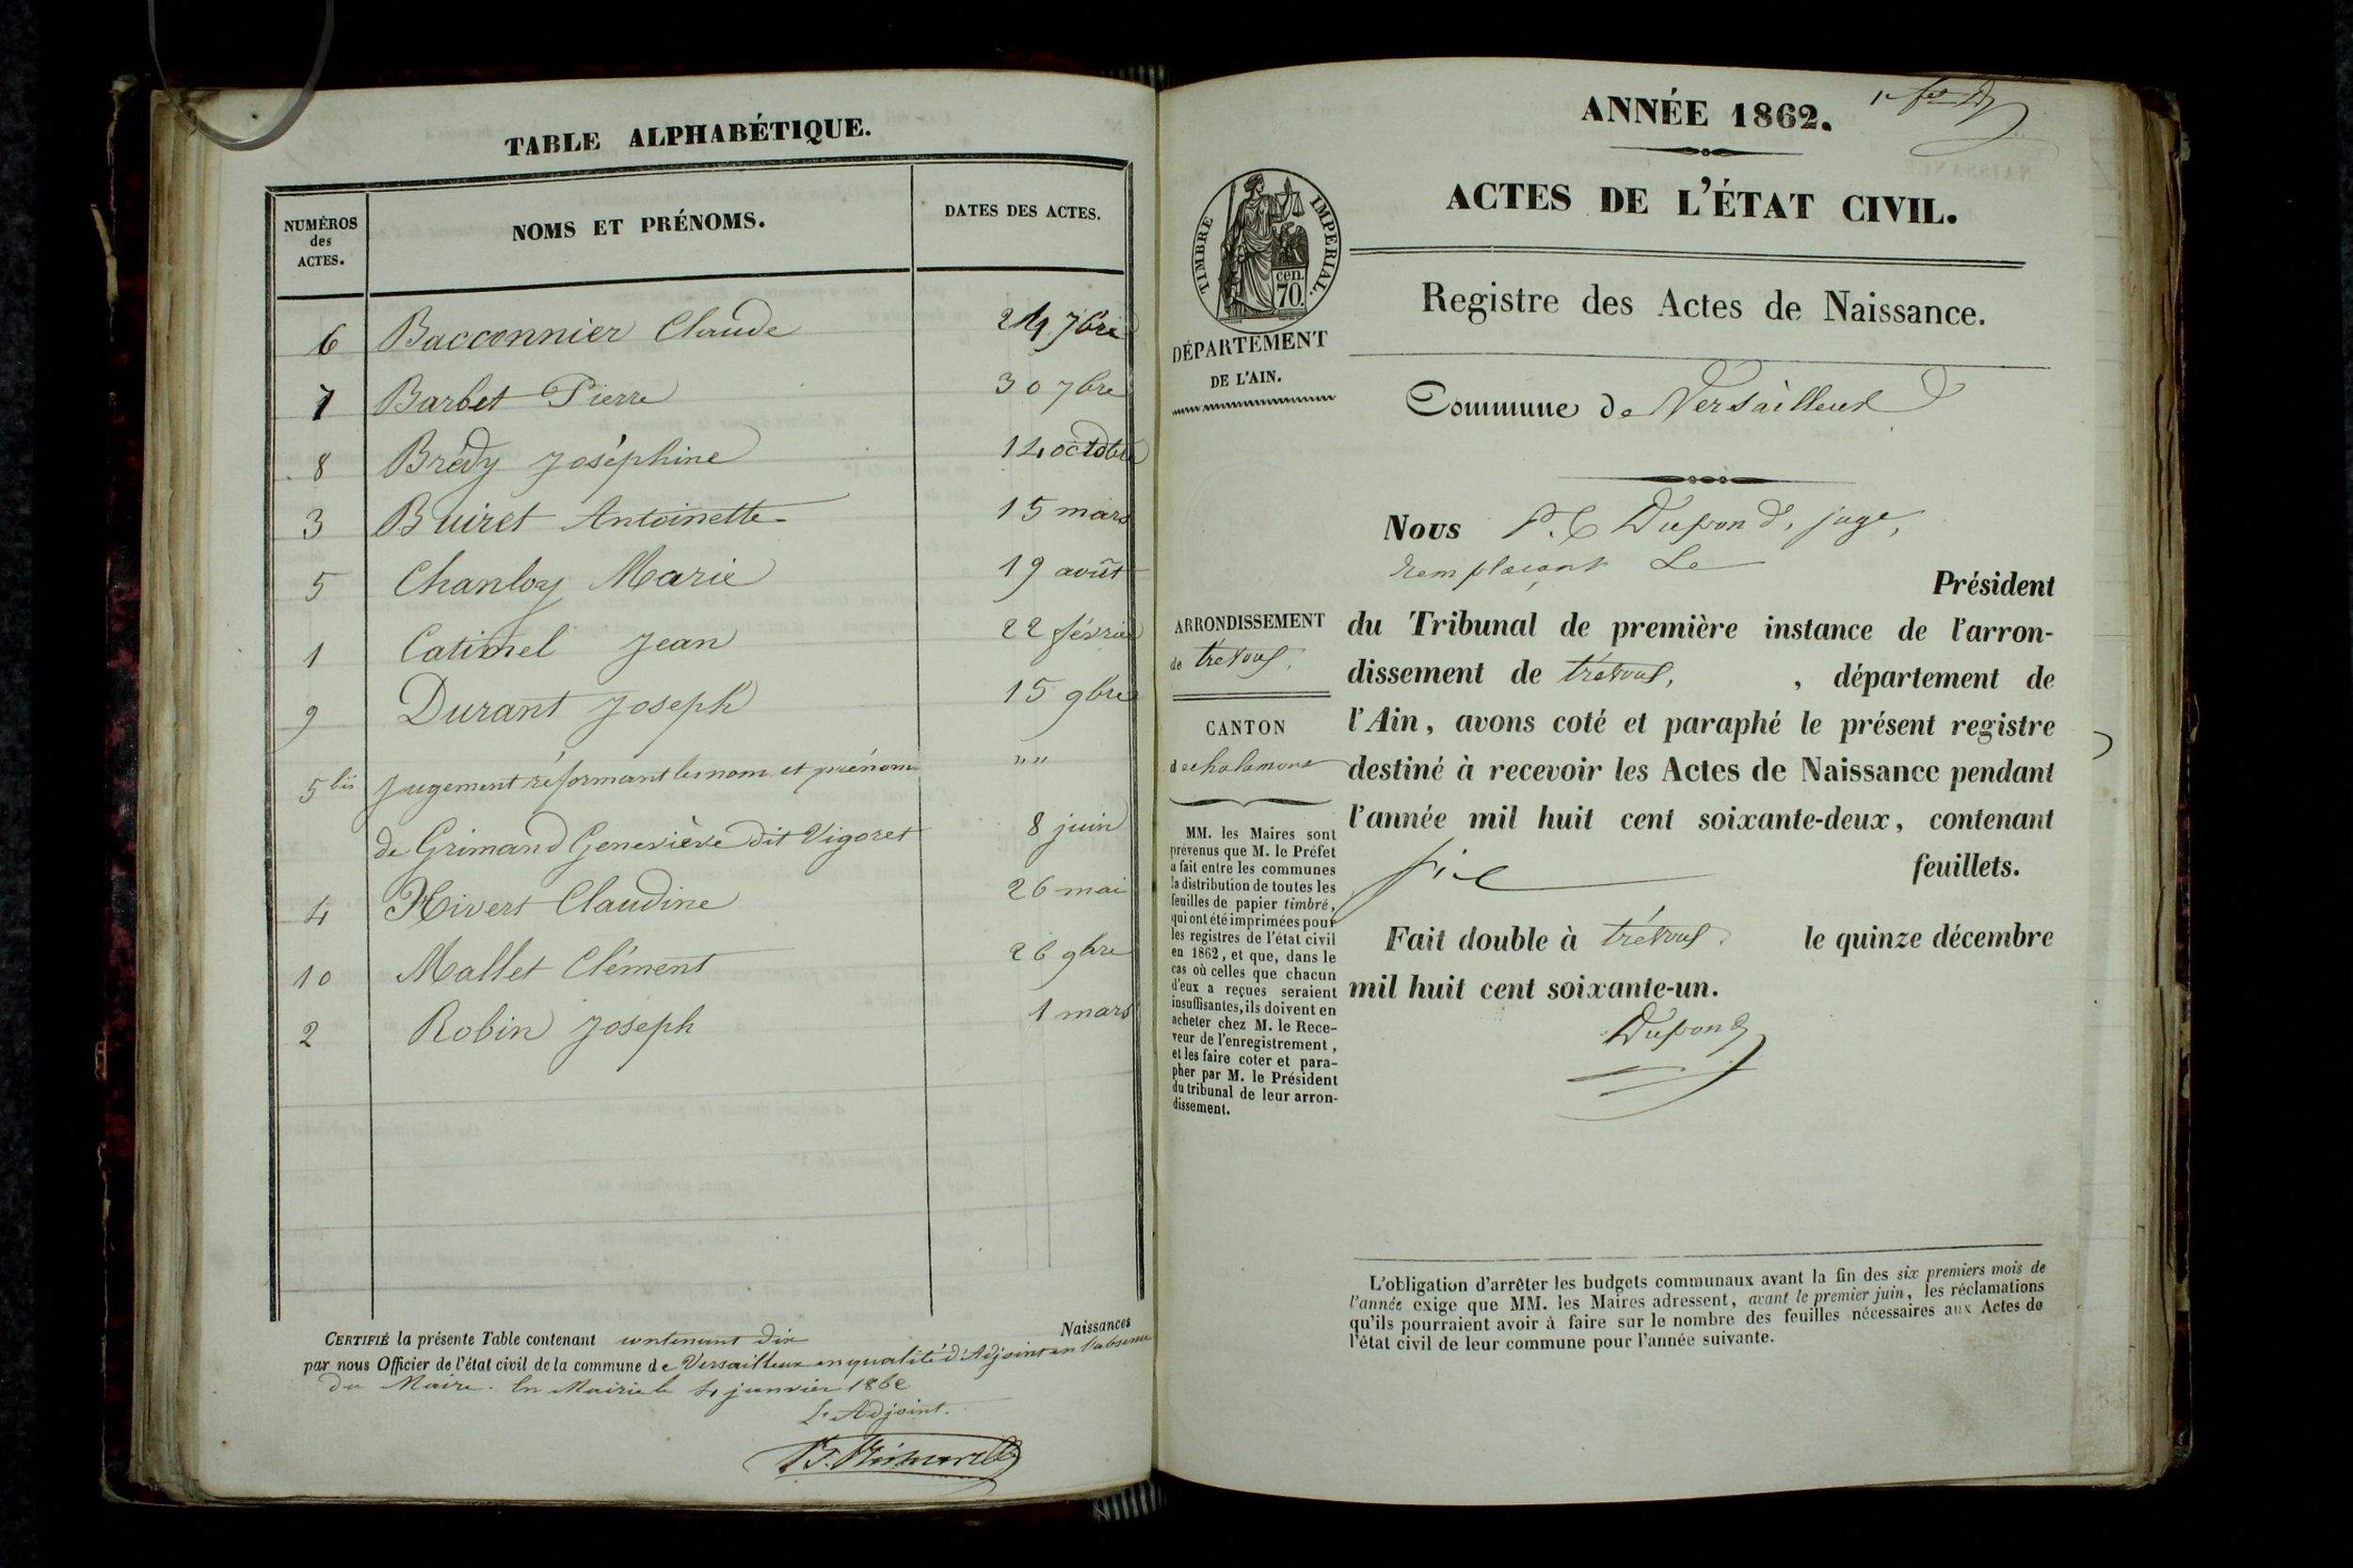 TABLE ALPHABÉTIQUE.
NUMÉROS des ACTES. NOMS ET PRÉNOMS. DATES DES ACTES.
6 Bacconnier Claude 24 7bre
7 Barbet Pierre 30 7bre
8 Brédy Joséphine 14 octobre
3 Buiret Antoinette 15 mars
5 Chanloy Marie 19 août
1 Catimel Jean 22 février
9 Durant Joseph 15 9bre
5 bis Jugement réformant les nom et prénom " "
de Grimand Geneviève dit Vigoret 8 juin
4 Hivert Claudine 26 mai
10 Mallet Clément 26 9bre
2 Robin Joseph 1 mars
CERTIFIÉ la présente Table contenant contenant dix Naissances
par nous Officier de l'état civil de la commune de Versailleux en qualité d'Adjoint en l'absence
du Maire. En Mairie le 4 janvier 1862
L'Adjoint.
ANNÉE 1862.
ACTES DE L'ÉTAT CIVIL.
TIMBRE IMPERIAL.
cen.
70.
Registre des Actes de Naissance.
DÉPARTEMENT
DE L'AIN.
Commune de Versailleux
Nous P. C Dupond, juge,
remplaçant Le
Président
du Tribunal de première instance de l'arron-
dissement de trévoux, , département de
l'Ain, avons coté et paraphé le présent registre
destiné à recevoir les Actes de Naissance pendant
l'année mil huit cent soixante-deux, contenant
six feuillets.
Fait double à trévoux. le quinze décembre
mil huit cent soixante-un.
Dupond
ARRONDISSEMENT
de trévoux.
CANTON
de chalamont
MM. les Maires sont
prévenus que M. le Préfet
a fait entre les communes
la distribution de toutes les
feuilles de papier timbré,
qui ont été imprimées pour
les registres de l'état civil
en 1862, et que, dans le
cas où celles que chacun
d'eux a reçues seraient
insuffisantes, ils doivent en
acheter chez M. le Rece-
veur de l'enregistrement,
et les faire coter et para-
pher par M. le Président
du tribunal de leur arron-
dissement.
L'obligation d'arrêter les budgets communaux avant la fin des six premiers mois de
l'année exige que MM. les Maires adressent, avant le premier juin, les réclamations
qu'ils pourraient avoir à faire sur le nombre des feuilles nécessaires aux Actes de
l'état civil de leur commune pour l'année suivante.